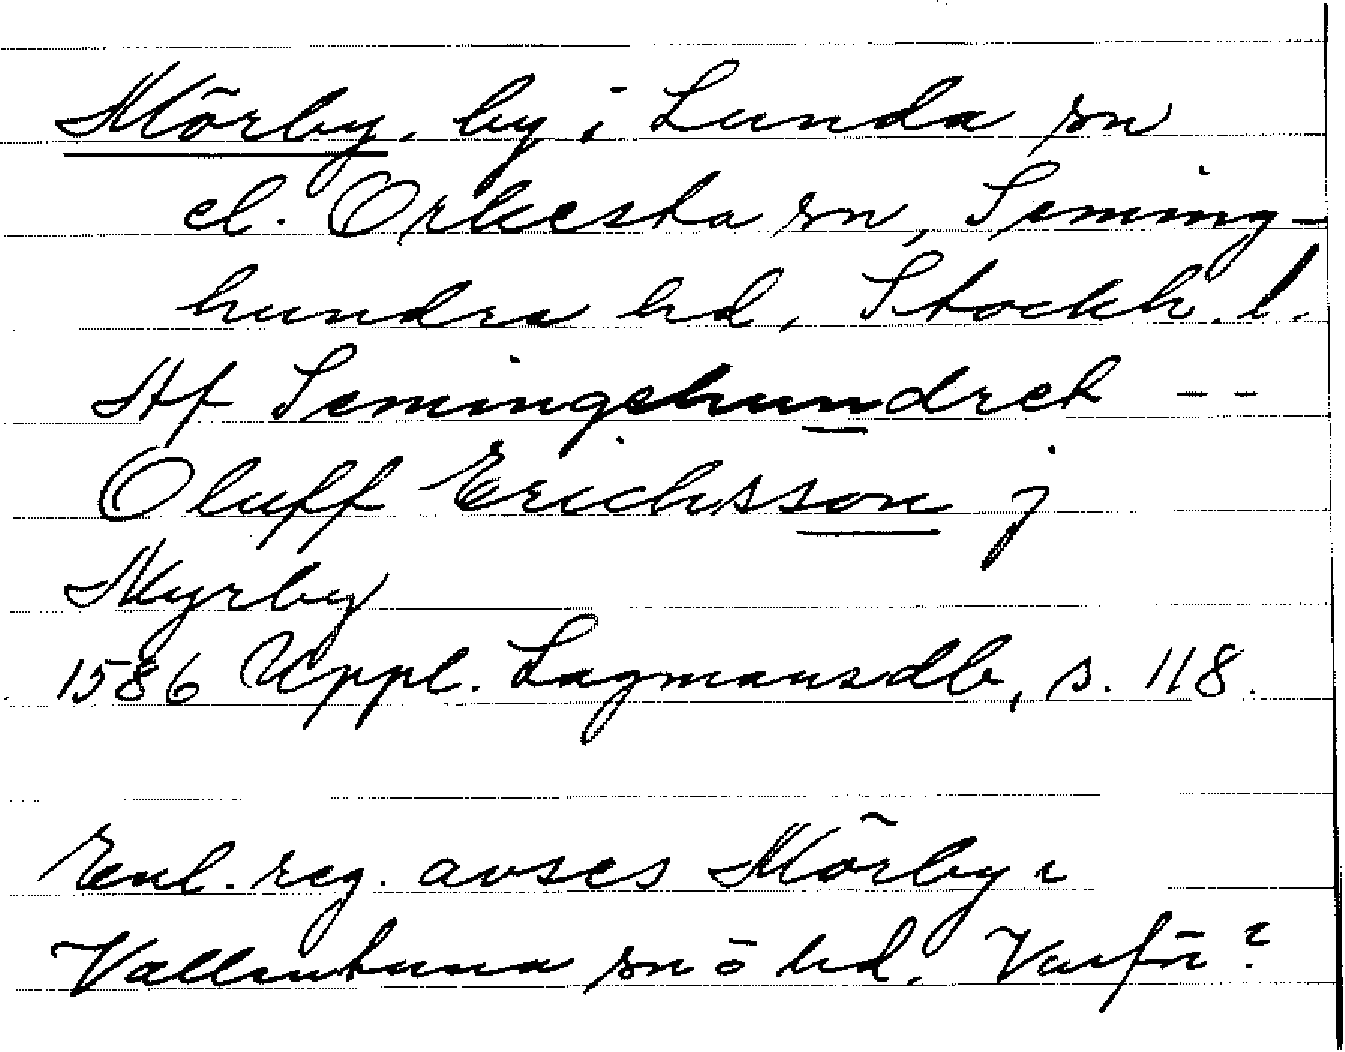 Mörby, by i Lunda sn
el. Orkesta sn, Seming-
hundra hd, Stockh. l.
Af Semingehundret - -
Oluff Erichsson j
Myrby
1586 Uppl. Lagmansdb, s. 118.
Enl. reg. avses Mörby i
Vallentuna sn o hd. Varför?